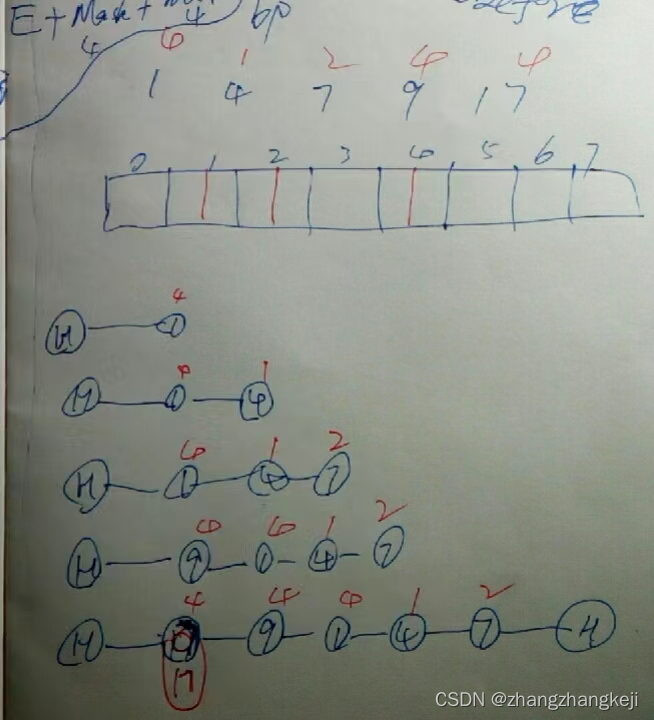 E + Mask +
4 4 bp
6 1 2 4 4
1 4 7 9 17
0 1 2 3 4 5 6 7
4
H 1
4 1
H 1 4
4 1 2
H 1 4 7
4 4 1 2
H 9 1 4 7
4 4 4 1 2
H 9 1 4 7 H
17
CSDN @zhangzhangkeji